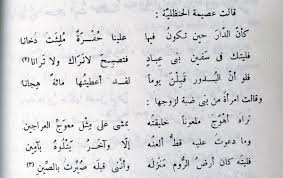 قالت عصيمة الحنظليّة :
كأنّ الدّار حين تكونُ فيها علينا حُفْرةٌ مُلِئتْ دُخانا
فليتك فى سَفين بنى عبادٍ فتصبحَ لا نَراك ولا تَرانا (٢)
فلو أنّ البُدور قبلْنَ يوماً لقد أعطيتُها مائةً هجانا
وقالت امرأة من بنى ضبة لزوجها :
تراه أهوجَ ملعوناً خليقتُه يمشى على مثل معوجّ العراجين
وما دعوت عليه قطُّ ألعنُه إلّا وآخر يتلوه بآمين
فليته كان أرضُ الرُّوم منزلَه وأننى قبله صُيّرتُ بالصّين (٣)